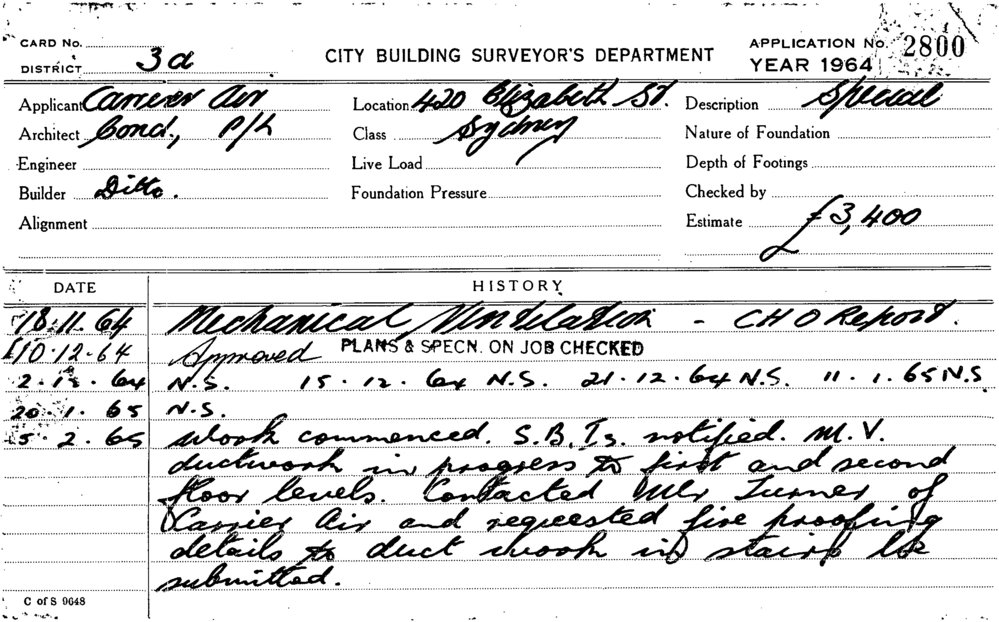 CARD No.
DISTRICT 3a
CITY BUILDING SURVEYOR'S DEPARTMENT
APPLICATION No. 2800
YEAR 1964
Applicant Carrier Air
Location 420 Elizabeth St.
Description Special
Architect Cond., P/L
Class Sydney
Nature of Foundation
Engineer
Live Load
Depth of Footings
Builder Ditto.
Foundation Pressure
Checked by
Alignment
Estimate £3,400
DATE HISTORY
18.11.64 Mechanical Ventilation - CHO Report.
10.12.64 Approved PLANS & SPECN. ON JOB CHECKED
2.12.64 N.S. 15.12.64 N.S. 21.12.64 N.S. 11.1.65 N.S
20.1.65 N.S.
5.2.65 work commenced. S.B.Is. notified. M.V.
ductwork in progress to first and second
floor levels. Contacted Mr Turner of
Carrier Air and requested fire proofing
details to duct work in stairs be
submitted.
C of S 9648